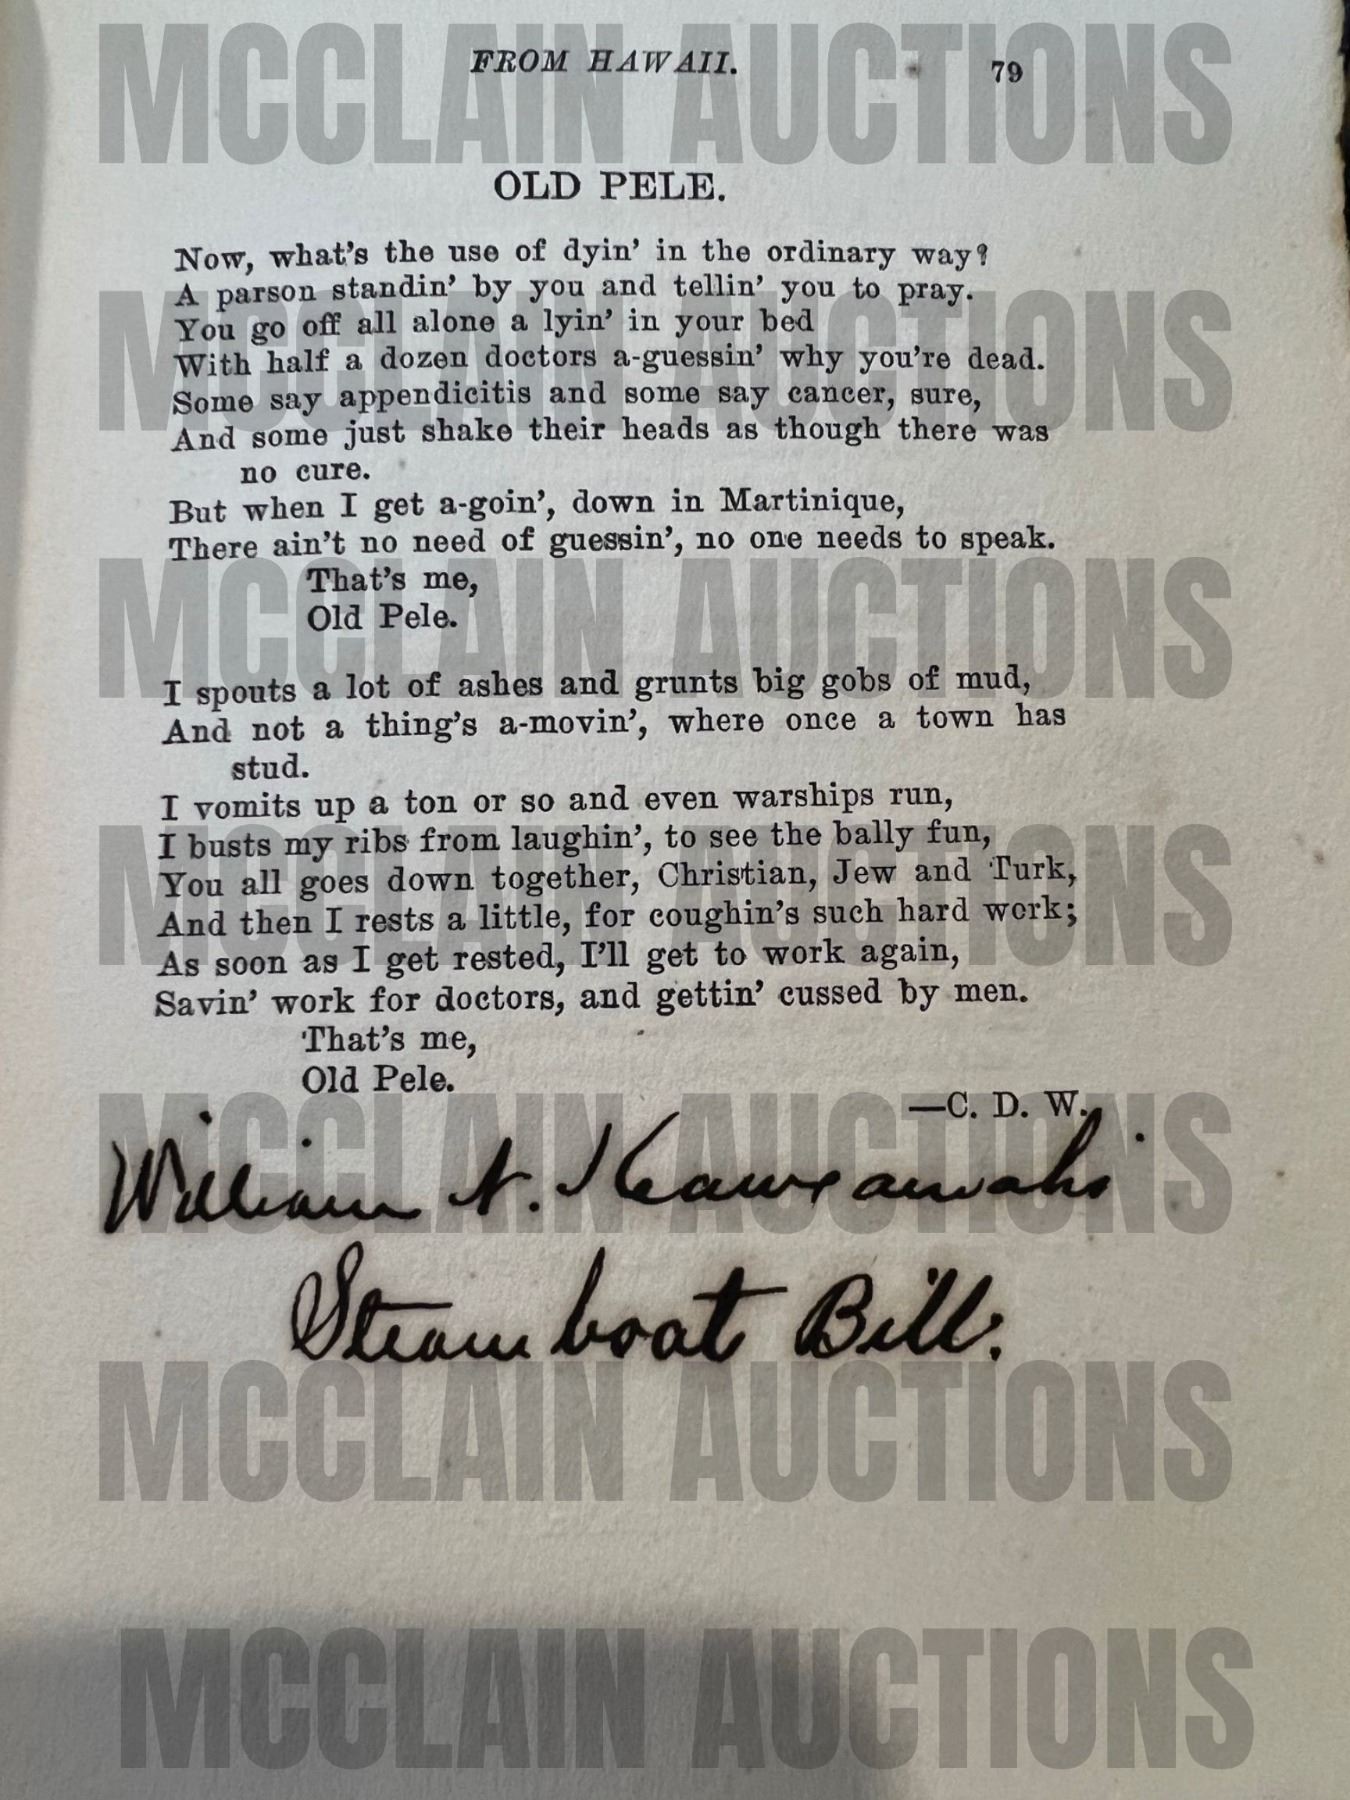 FROM HAWAII. 79
OLD PELE.
Now, what's the use of dyin' in the ordinary way?
A parson standin' by you and tellin' you to pray.
You go off all alone a lyin' in your bed
With half a dozen doctors a-guessin' why you're dead.
Some say appendicitis and some say cancer, sure,
And some just shake their heads as though there was
no cure.
But when I get a-goin', down in Martinique,
There ain't no need of guessin', no one needs to speak.
That's me,
Old Pele.
I spouts a lot of ashes and grunts big gobs of mud,
And not a thing's a-movin', where once a town has
stud.
I vomits up a ton or so and even warships run,
I busts my ribs from laughin', to see the bally fun,
You all goes down together, Christian, Jew and Turk,
And then I rests a little, for coughin's such hard work;
As soon as I get rested, I'll get to work again,
Savin' work for doctors, and gettin' cussed by men.
That's me,
Old Pele.
—C. D. W.
William N.
Steamboat Bill.
MCCLAIN AUCTIONS
MCCLAIN AUCTIONS
MCCLAIN AUCTIONS
MCCLAIN AUCTIONS
MCCLAIN AUCTIONS
MCCLAIN AUCTIONS
MCCLAIN AUCTIONS